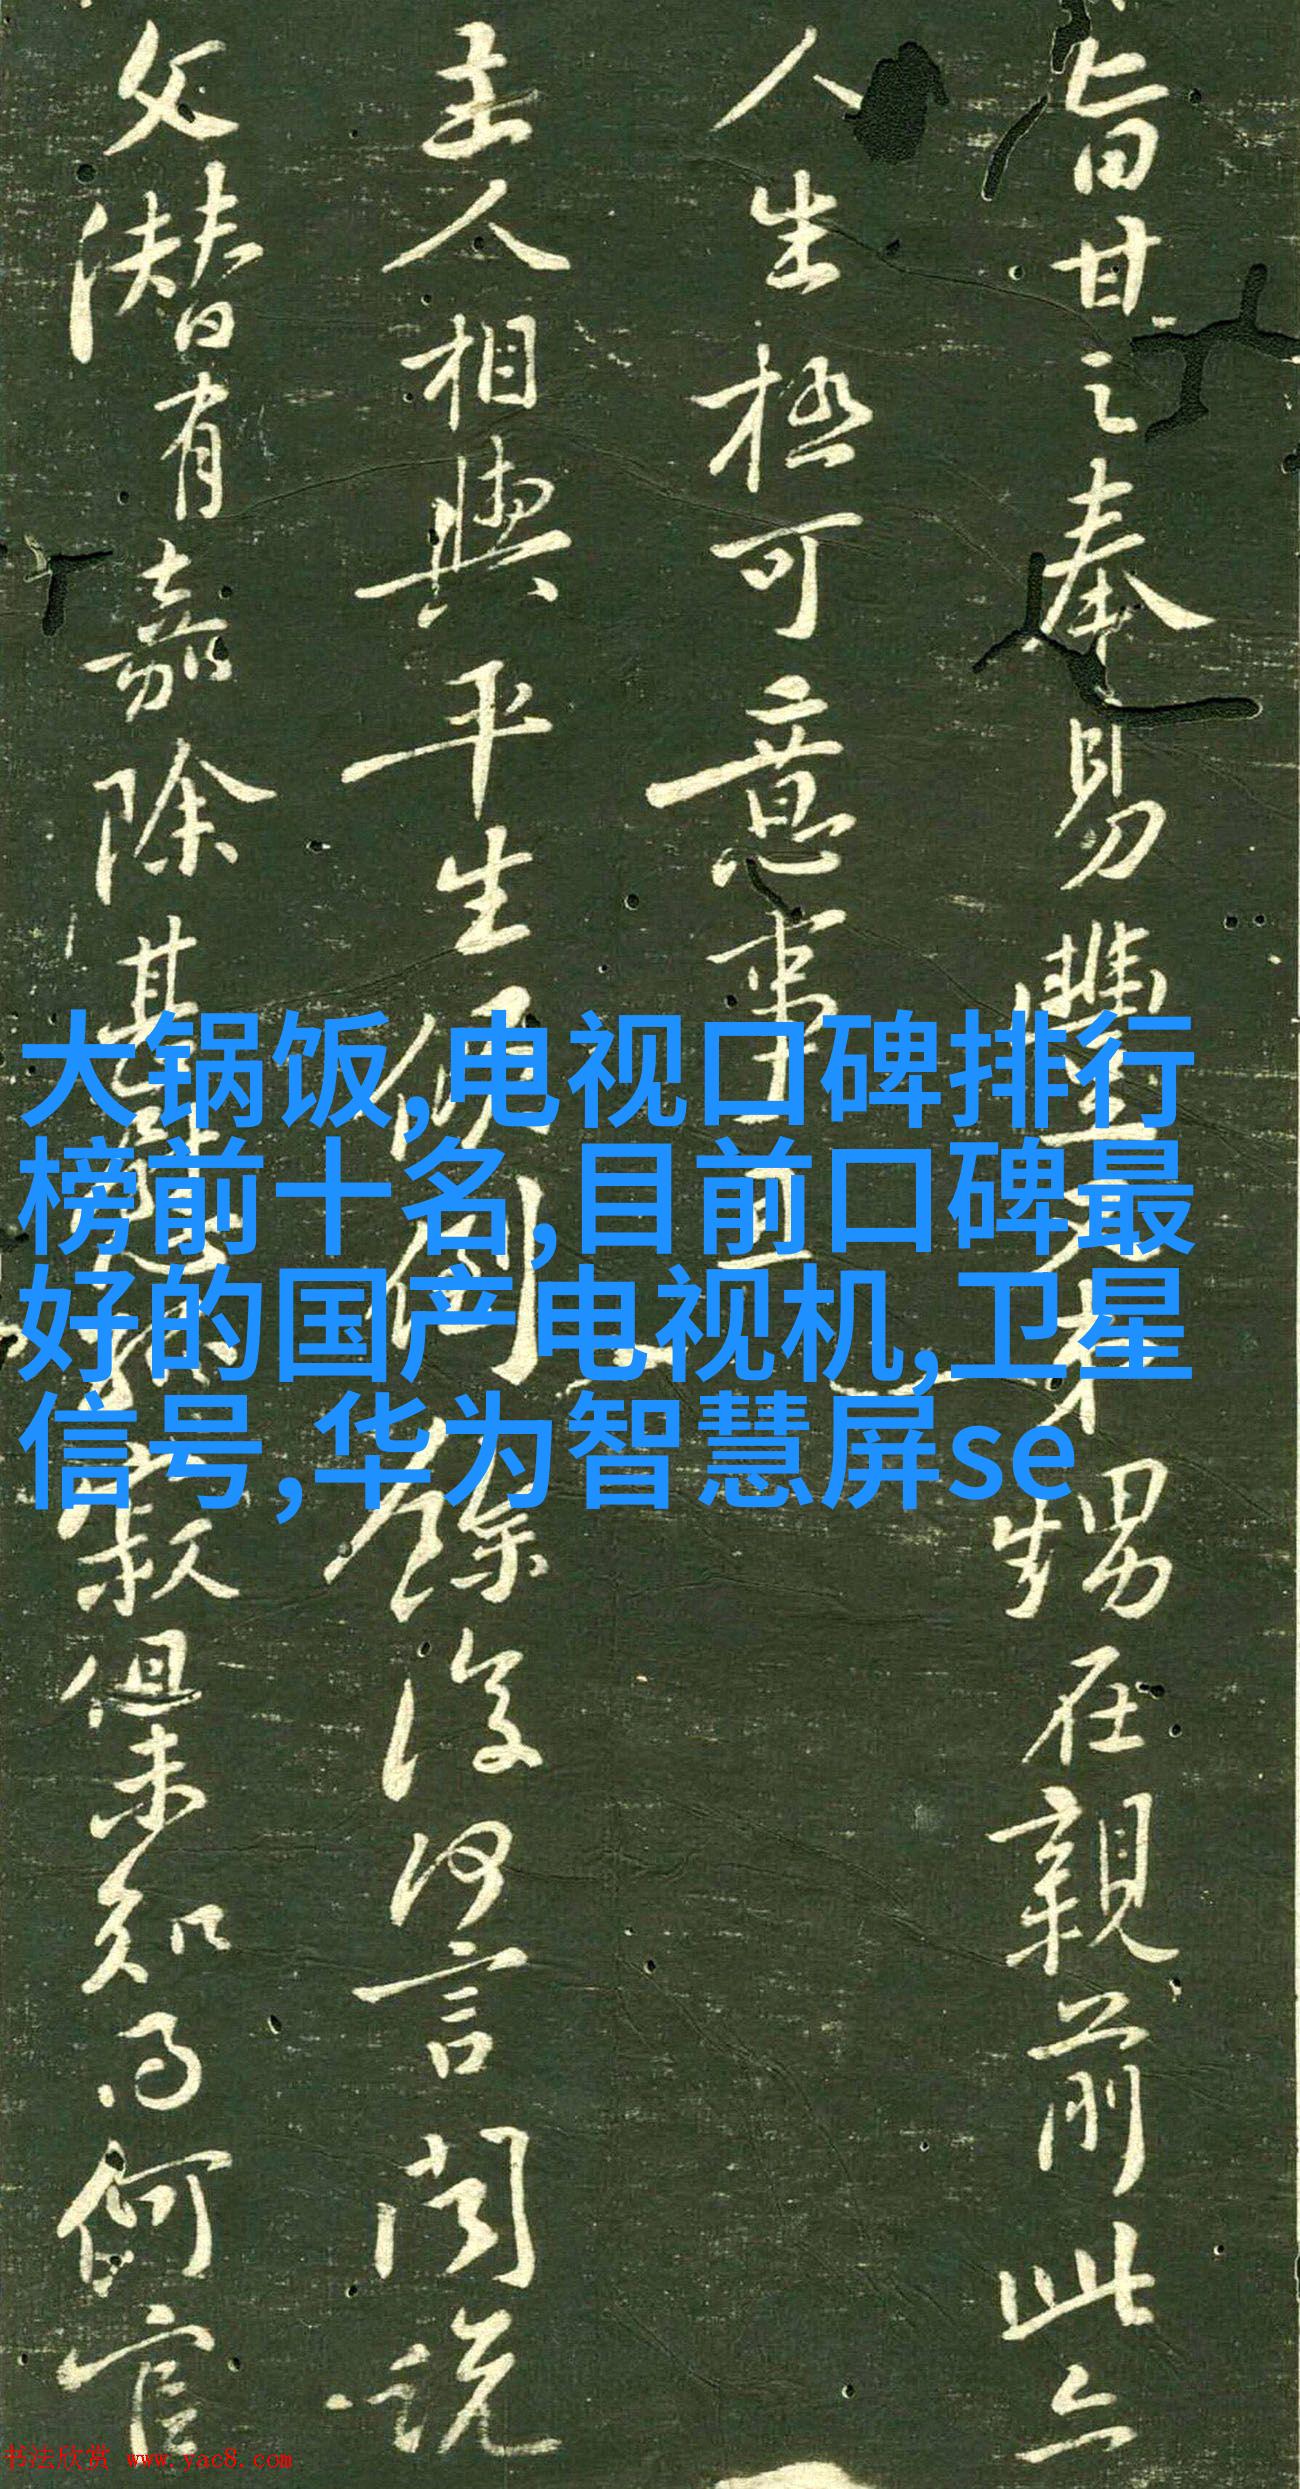 旨甘之奉易豐
甥在親前此亦
人生極可意事
且
主人相與平生傾倒
餘復何言聞說
父潜有嘉除其
寂但未知得何官
大锅饭,电视口碑排行
榜前十名,目前口碑最
好的国产电视机,卫星
信号,华为智慧屏se
书法欣赏 www.yac8.com